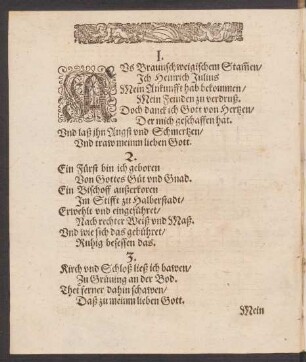 I.
AVs Braunschweigischem Stam̃en/
Ich Heinrich Julius
Mein Ankunfft hab bekommen/
Mein Feinden zu verdruß.
Doch danck ich Gott von Hertzen/
Der mich geschaffen hat.
Vnd laß jhn Angst vnd Schmertzen/
Vnd traw meinm lieben Gott.
2.
Ein Fürst bin ich geboren
Von Gottes Güt vnd Gnad.
Ein Bischoff außerkoren
Im Stifft zu Halberstadt/
Erwehlt vnd eingeführet/
Nach rechter Weiß vnd Maß.
Vnd wie sich das gebühret/
Ruhig besessen das.
3.
Kirch vnd Schloß ließ ich bawen/
Zu Grüning an der Bod.
Thet ferner dahin schawen/
Daß zu meinm lieben Gott.
Mein